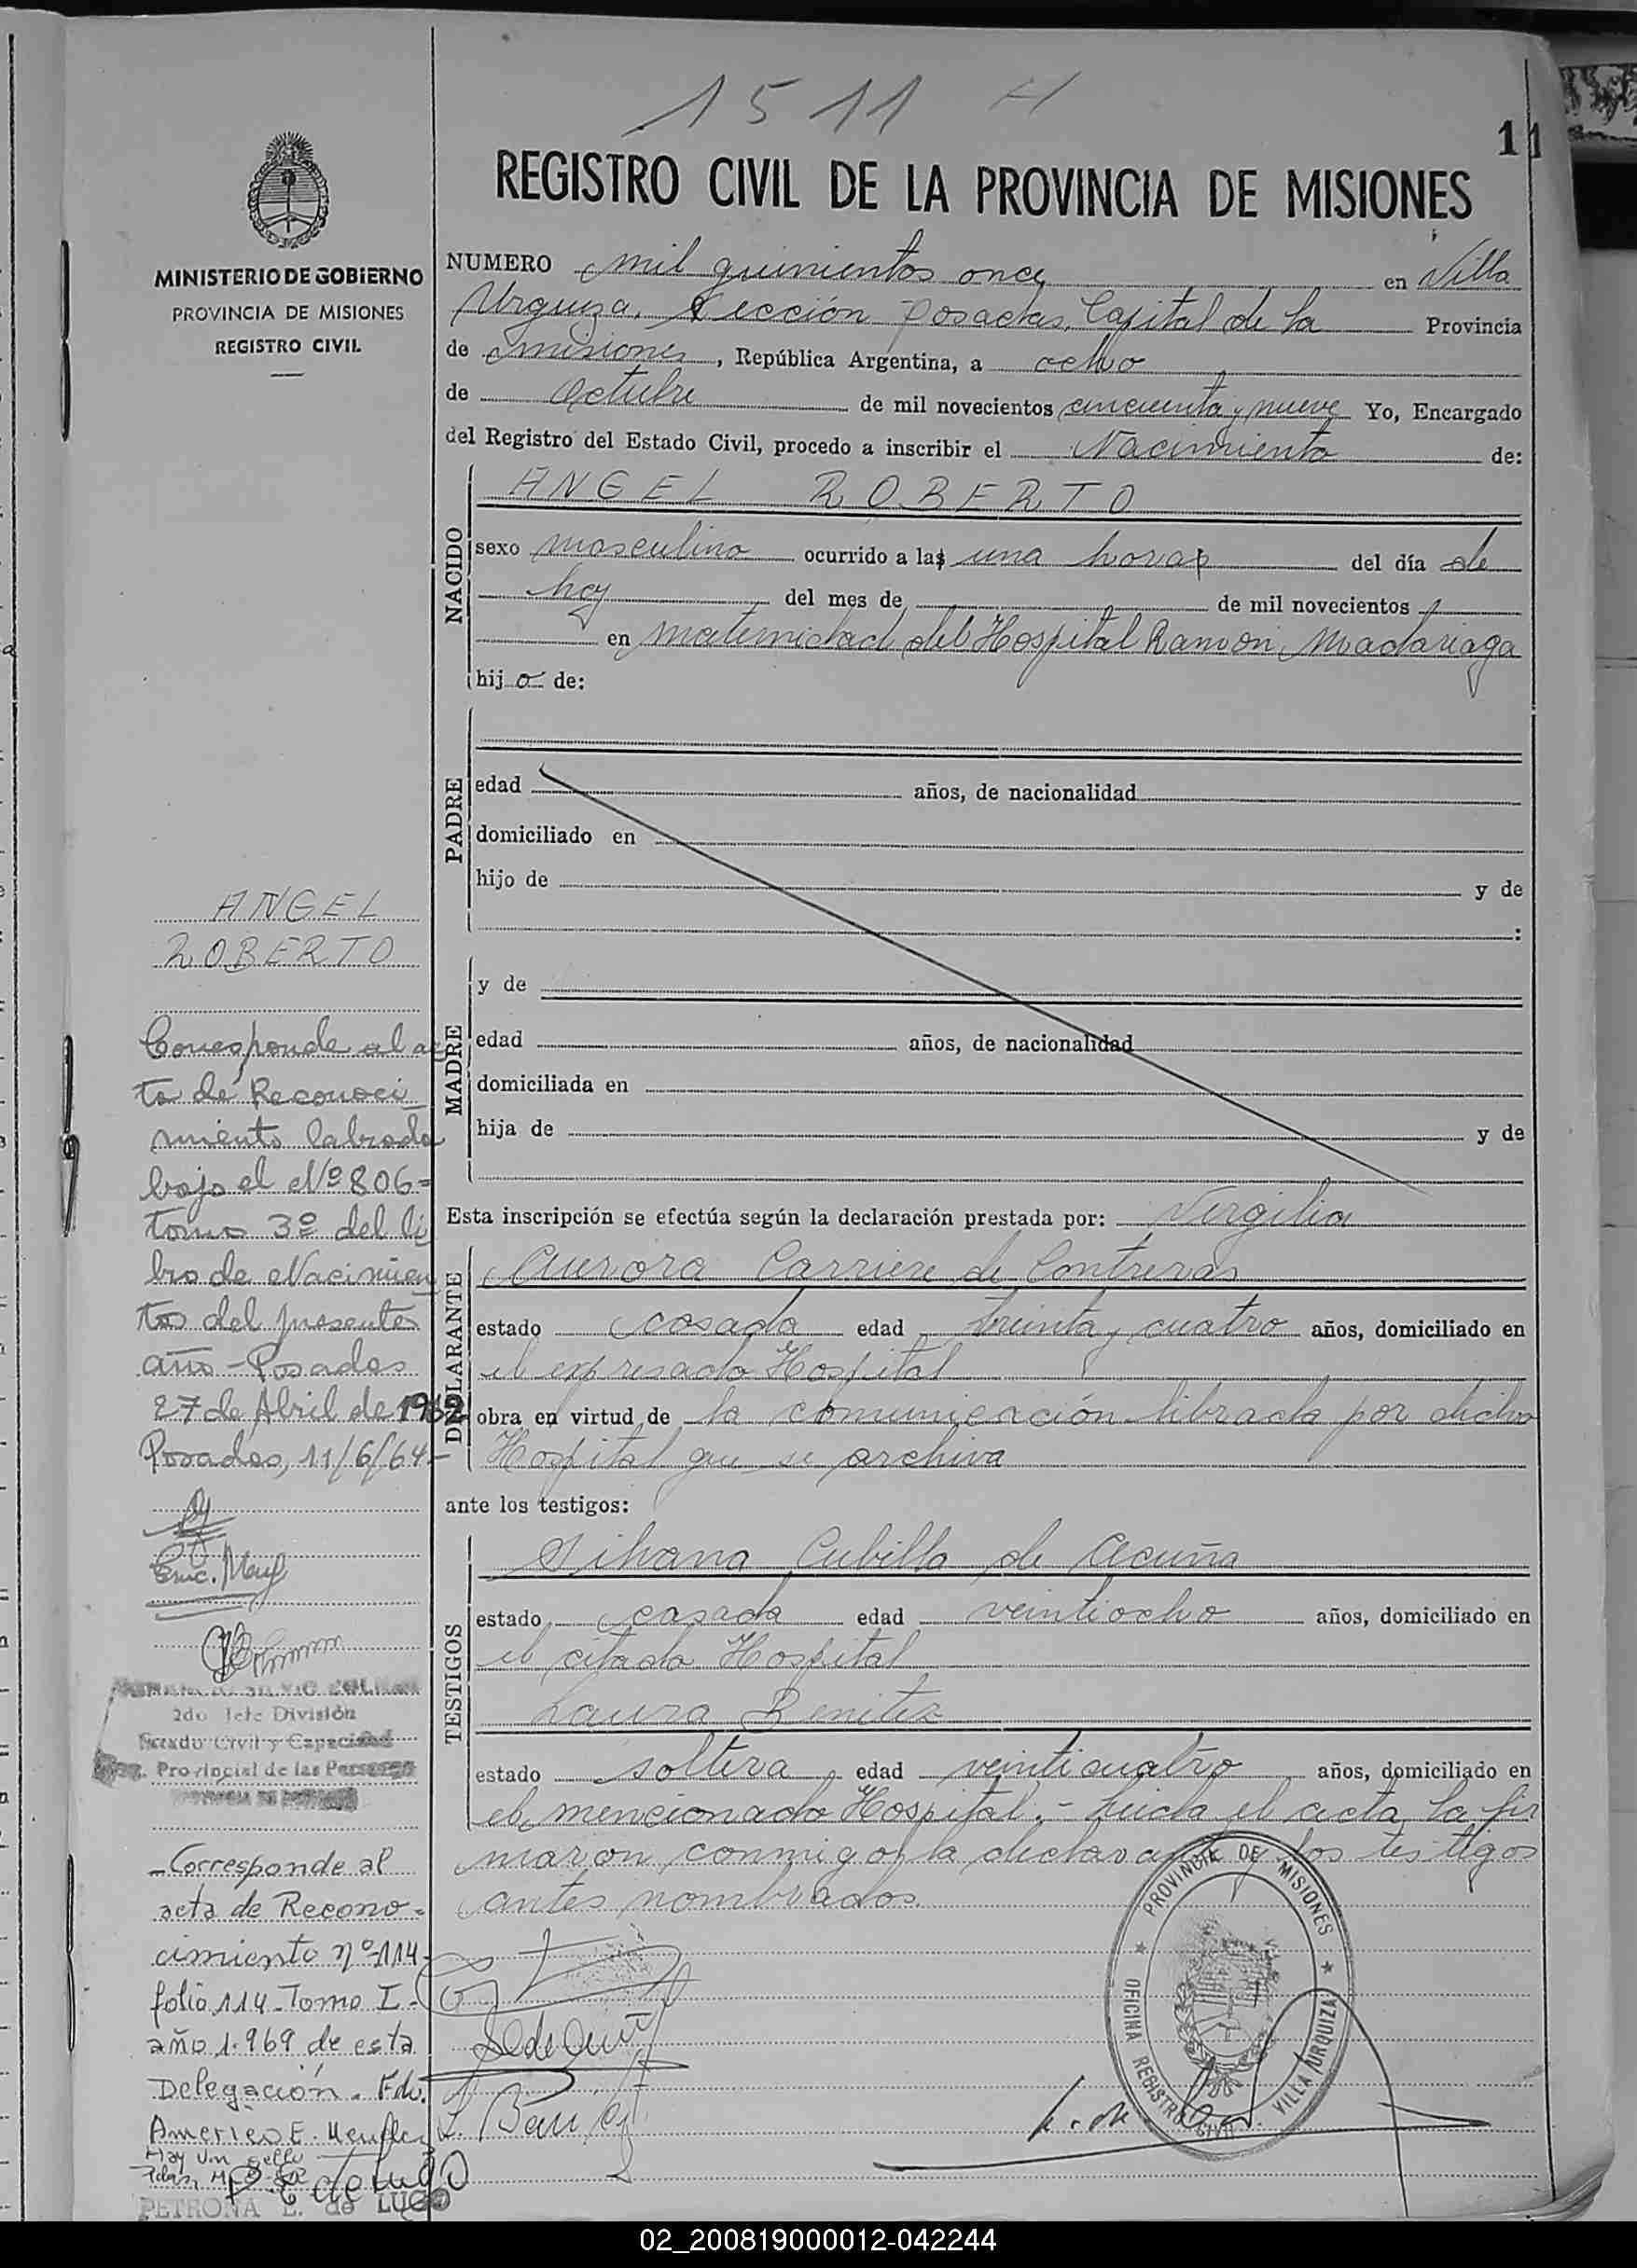 1511 H
11
REGISTRO CIVIL DE LA PROVINCIA DE MISIONES
MINISTERIO DE GOBIERNO
PROVINCIA DE MISIONES
REGISTRO CIVIL
NUMERO mil quinientos once en Villa
Urquiza, Sección Posadas, Capital de la Provincia
de Misiones, República Argentina, a ocho
de Octubre de mil novecientos cincuenta y nueve Yo, Encargado
del Registro del Estado Civil, procedo a inscribir el Nacimiento de:
NACIDO
ANGEL ROBERTO
sexo masculino ocurrido a las una horas del día de
hoy del mes de de mil novecientos
en maternidad del Hospital Ramon Madariaga
hijo de:
PADRE
edad años, de nacionalidad
domiciliado en
hijo de y de
:
MADRE
y de
edad años, de nacionalidad
domiciliada en
hija de y de
Esta inscripción se efectúa según la declaración prestada por: Virgilia
DECLARANTE
Aurora Carriere de Contreras
estado casada edad treinta y cuatro años, domiciliado en
el expresado Hospital
obra en virtud de la comunicación librada por dicho
Hospital que se archiva
ante los testigos:
TESTIGOS
Silvana Cubilla de Acuña
estado casada edad veintiocho años, domiciliado en
el citado Hospital
Laura Benitez
estado soltera edad veinticuatro años, domiciliado en
el mencionado Hospital.- Leida el acta, la fir
maron conmigo, la declarante y los testigos
antes nombrados.
PROVINCIA DE MISIONES
OFICINA REGISTRO CIVIL VILLA URQUIZA
ANGEL
ROBERTO
Corresponde al ac
ta de Reconoci
miento labrada
bajo el Nº 806=
tomo 3º del li
bro de Nacimien
tos del presente
año - Posadas
27 de Abril de 1962
Posadas, 11/6/64-
2do Jefe División
Estado Civil y Capacidad
Provincial de las Personas
-Corresponde al
acta de Recono-
cimiento nº-114-
folio 114-Tomo I.-
año 1.969 de esta
Delegación. Fdo.
Americo E.
Hay un sello
P. E de Lugo
PETRONA E. de LUGO
02_200819000012-042244